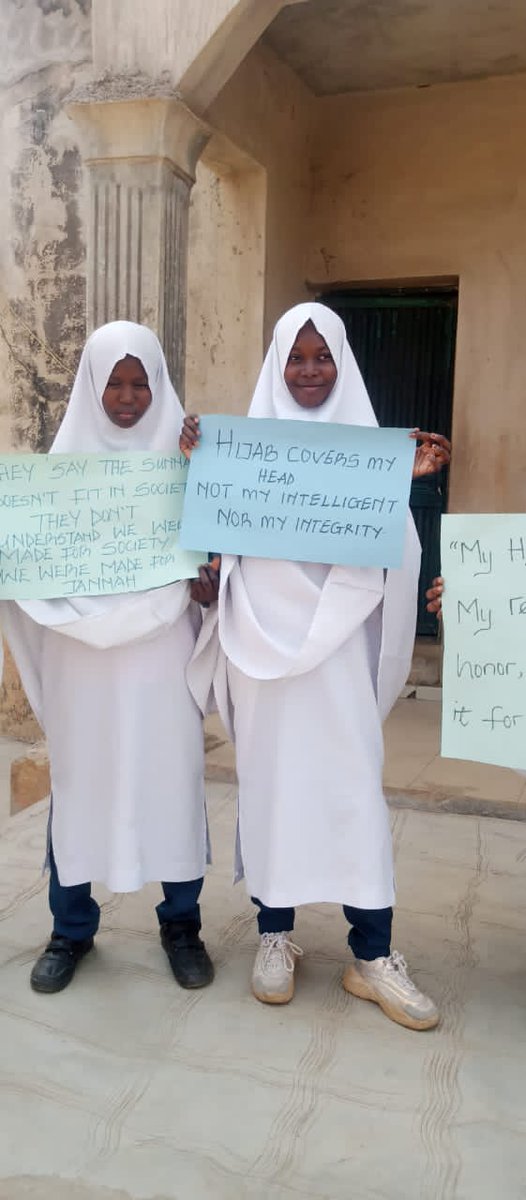 HEY SAY THE SUNNA
DOESN'T FIT IN SOCIET
THEY DON'T
UNDERSTAND WE WER
MADE FOR SOCIETY,
WE WERE MADE FOR
JANNAH
HIJAB COVERS MY
HEAD
NOT MY INTELLIGENT
NOR MY INTEGRITY
"My H
My
honor,
it for